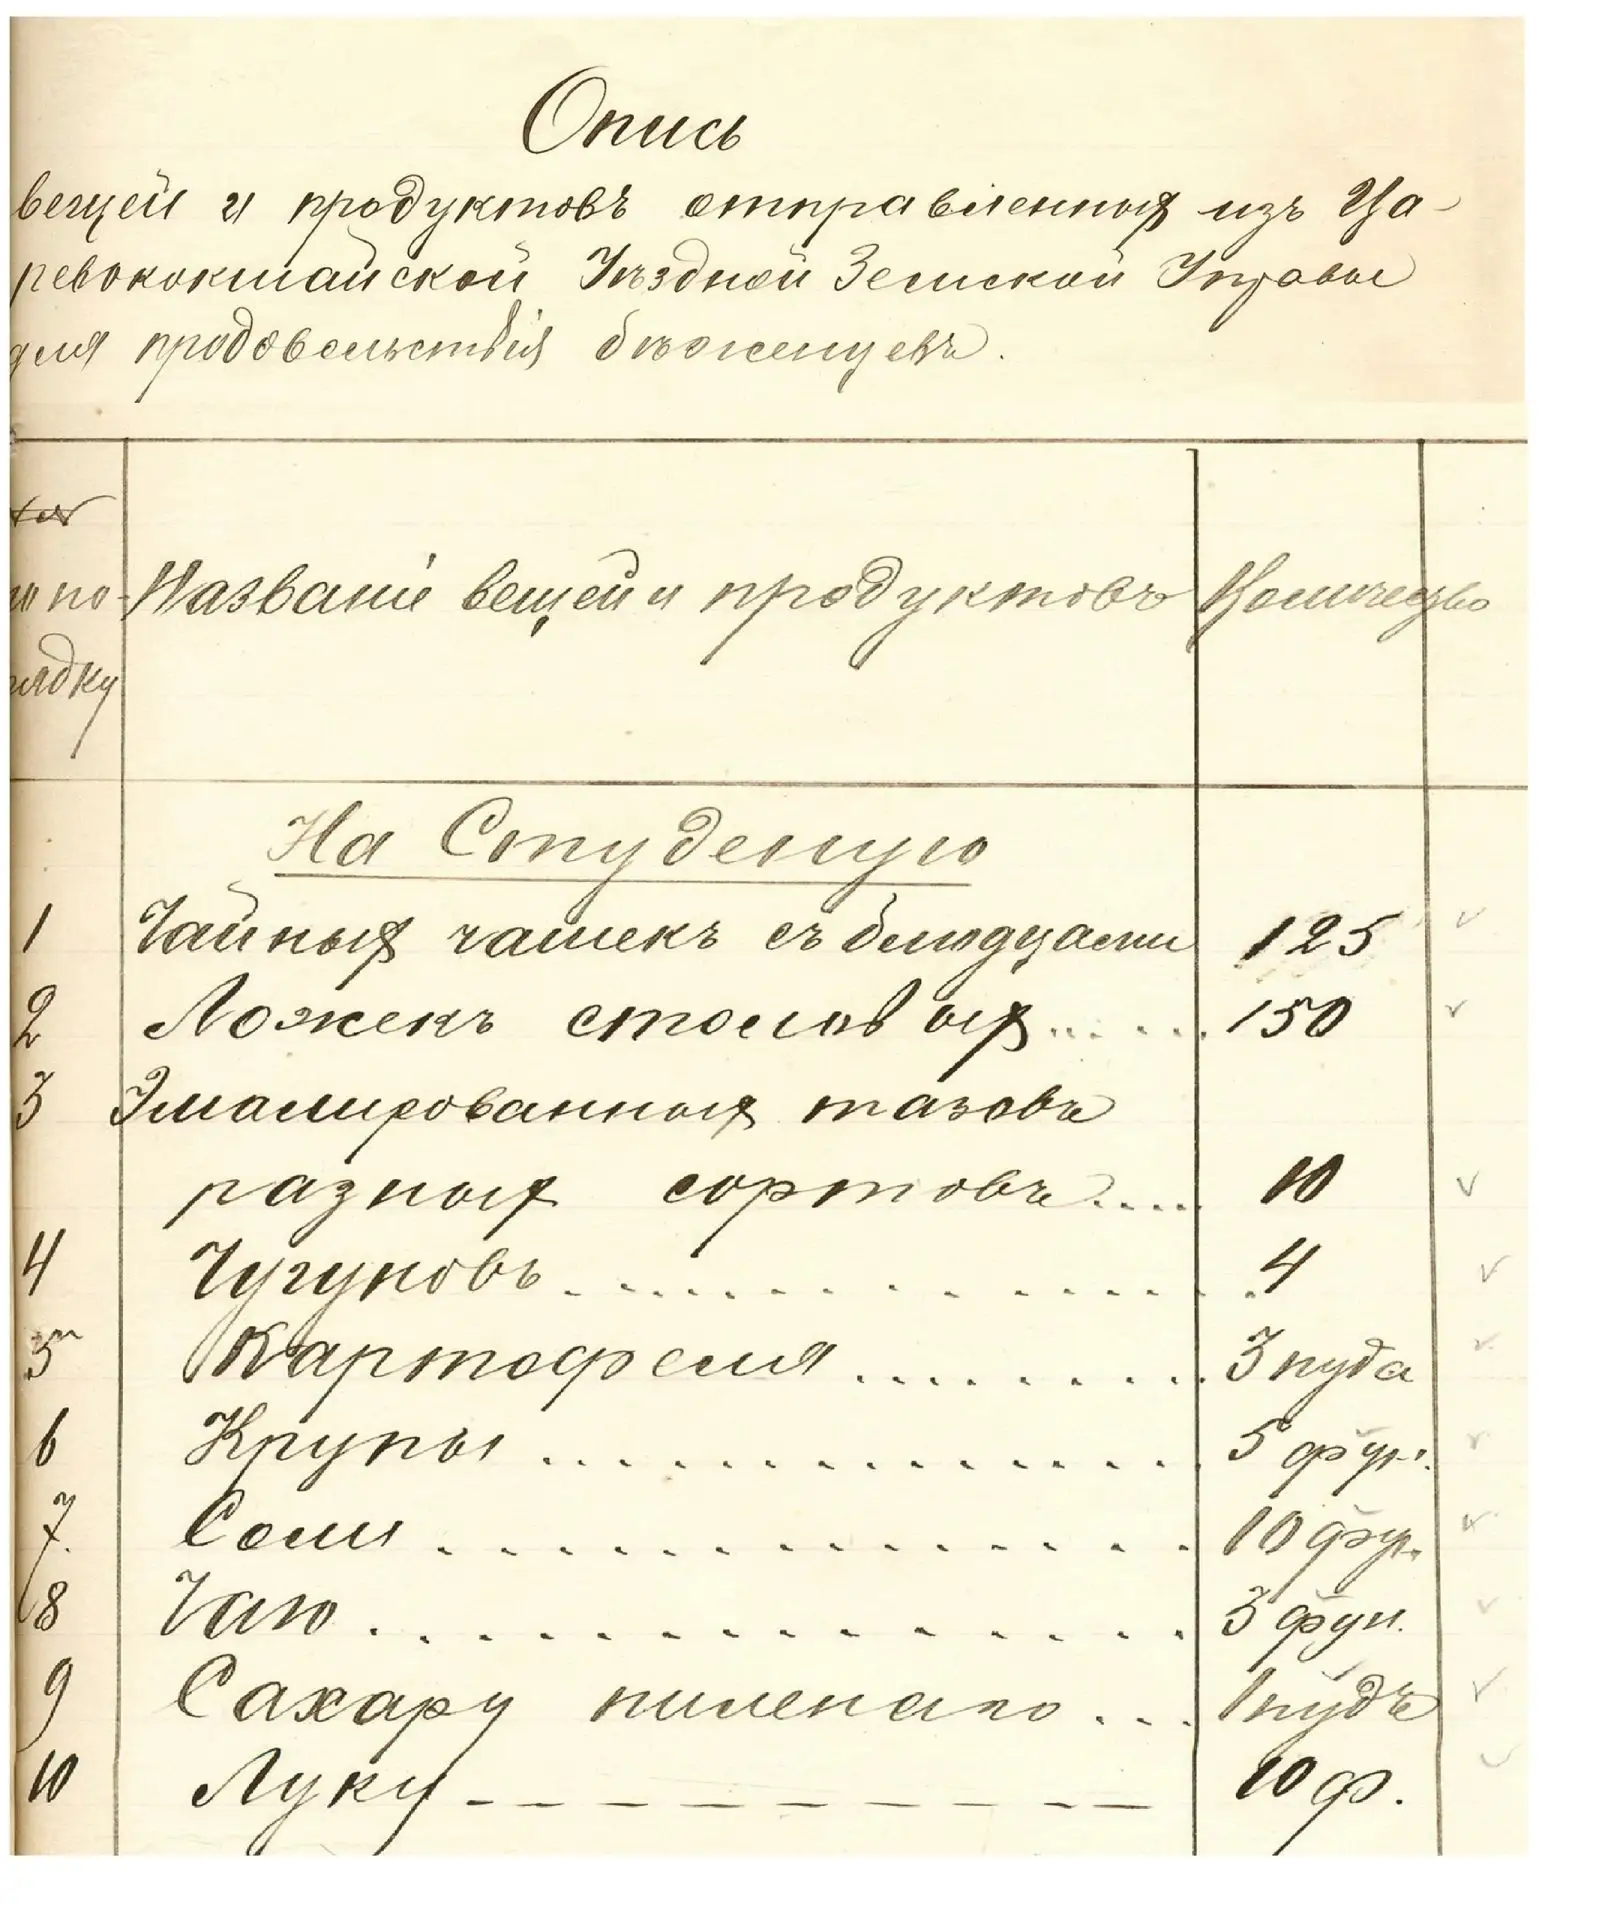 Опись
вещей и продуктовъ отправленныя изъ Ца-
ревококшайской Уѣздной Земской Управы
для продовольствія бѣженцевъ.
но по-
рядку
Названіе вещей и продуктовъ Количество
На Студеную
1 Чайныя чашекъ съ блюдцами 125
2 Ложекъ столовыя..... 150
3 Эмалированныя тазовъ
разныя сортовъ.... 10
4 Чугуновъ............ 4
5 Картофеля......... 3 пуда
6 Крупы............... 5 фун.
7. Соли............... 10 фун.
8 Чаю............... 3 фун.
9 Сахару пиленаго... 1 пудъ
10 Луку — — — — — — — — 10 ф.